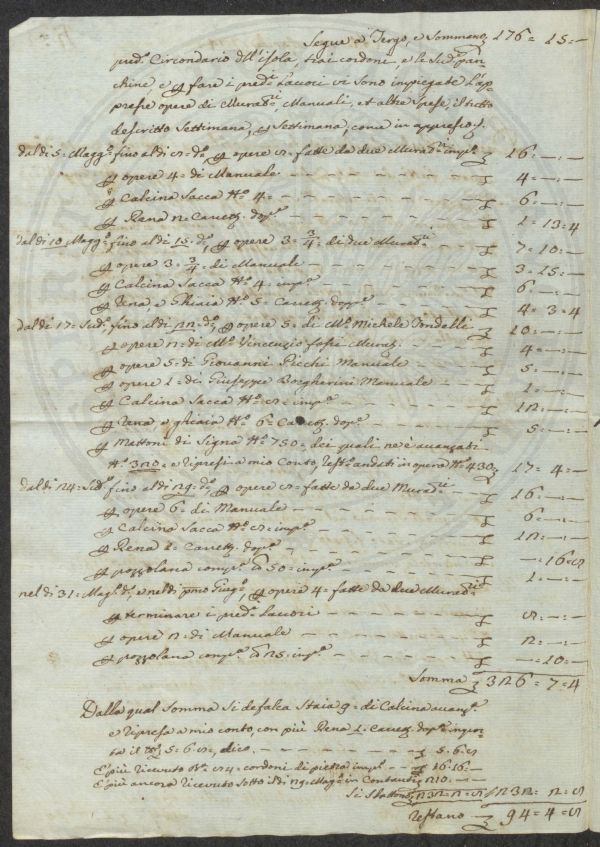 Segue a Tergo, e Sommano £ 176 = 15 = —
pred.º Circondario dell'isola, tiai cordoni, e le Sud.e pan-
chine, e p fare i pred.i Lavori vi sono impiegate L'ap-
presse opere di Murad.ri, Manuali, et altre Spese, il tutto
descritto Settimana, p Settimana, come in appresso p.
dal dì 5 = Magg.º fino al dì 8 = d.º p opere 8 = fatte da due Murad.ri imp.º £ 16 = — = —
p opere 4 = di Manuale £ 4 = — = —
p Calcina Sacca Nº 4 = £ 6 = — = —
p Rena 2 = Carret. dop.e £ 1 = 13 = 4
dal dì 10 Magg.º fino al dì 15 = d.º p opere 3 = 3/4 = di due Murad.ri £ 7 = 10 = —
p opere 3 = 3/4 = di Manuale £ 3 = 15 = —
p Calcina Sacca Nº 4 = imp.º £ 6 = — = —
p Rena, e Ghiaia Nº 5 = Carret. dopp.e £ 4 = 3 = 4
dal dì 17 = Sud.º fino al dì 22 = d.º p opere 5 = di M.º Michele Tondelli £ 10 = — = —
p opere 2 = di M.º Vincenzio Fossi Murat. £ 4 = — = —
p opere 5 = di Giovanni Picchi Manuale £ 5 = — = —
p opere 1 = di Giuseppe Borgherini Manuale £ 1 = — = —
p Calcina Sacca Nº 8 = imp.º £ 12 = — = —
p Rena, e ghiaia Nº 6 = Carret. dop.e £ 5 = — = —
p Mattoni di Signa Nº 750 = dei quali ne è avanzati
Nº 320 = e ripresi a mio Conto, rest.o andati in opera Nº 430 £ 17 = 4 = —
dal dì 24 = Sud.º fino al dì 29 = d.º p opere 8 = fatte da due Murad.ri £ 16 = — = —
p opere 6 = di Manuale £ 6 = — = —
p Calcina Sacca Nº 8 = imp.º £ 12 = — = —
p Rena 1 = Carret. dop.e £ — = 16 = 8
p pozzolana comp.e lb 50 = imp.º £ 1 = — = —
nel dì 31 = Mag.º d.º, e nel dì primo Giug.º p opere 4 = fatte da due Murad.ri
p terminare i pred.i Lavori £ 8 = — = —
p opere 2 = di Manuale £ 2 = — = —
p pozzolana comp.e lb 25 = imp.º £ — = 10 = —
Somma £ 326 = 7 = 4
Dalla qual Somma si defalca Staia 9 = di Calcina avanz.a
e ripresa a mio conto, con più Rena 1 = Carret. dop.e impor-
ta il tto £ 5 = 6 = 8, dico £ 5 = 6 = 8
E più ricevuto Nº 84 = cordoni di pietra imp.º £ 16 = 16 = —
E più ancora ricevuto Sotto il dì 29 = Mag.º in Contanti £ 210 = —
Si Sbattono £ 232 = 2 = 8 / 232 = 2 = 8
restano £ 94 = 4 = 8